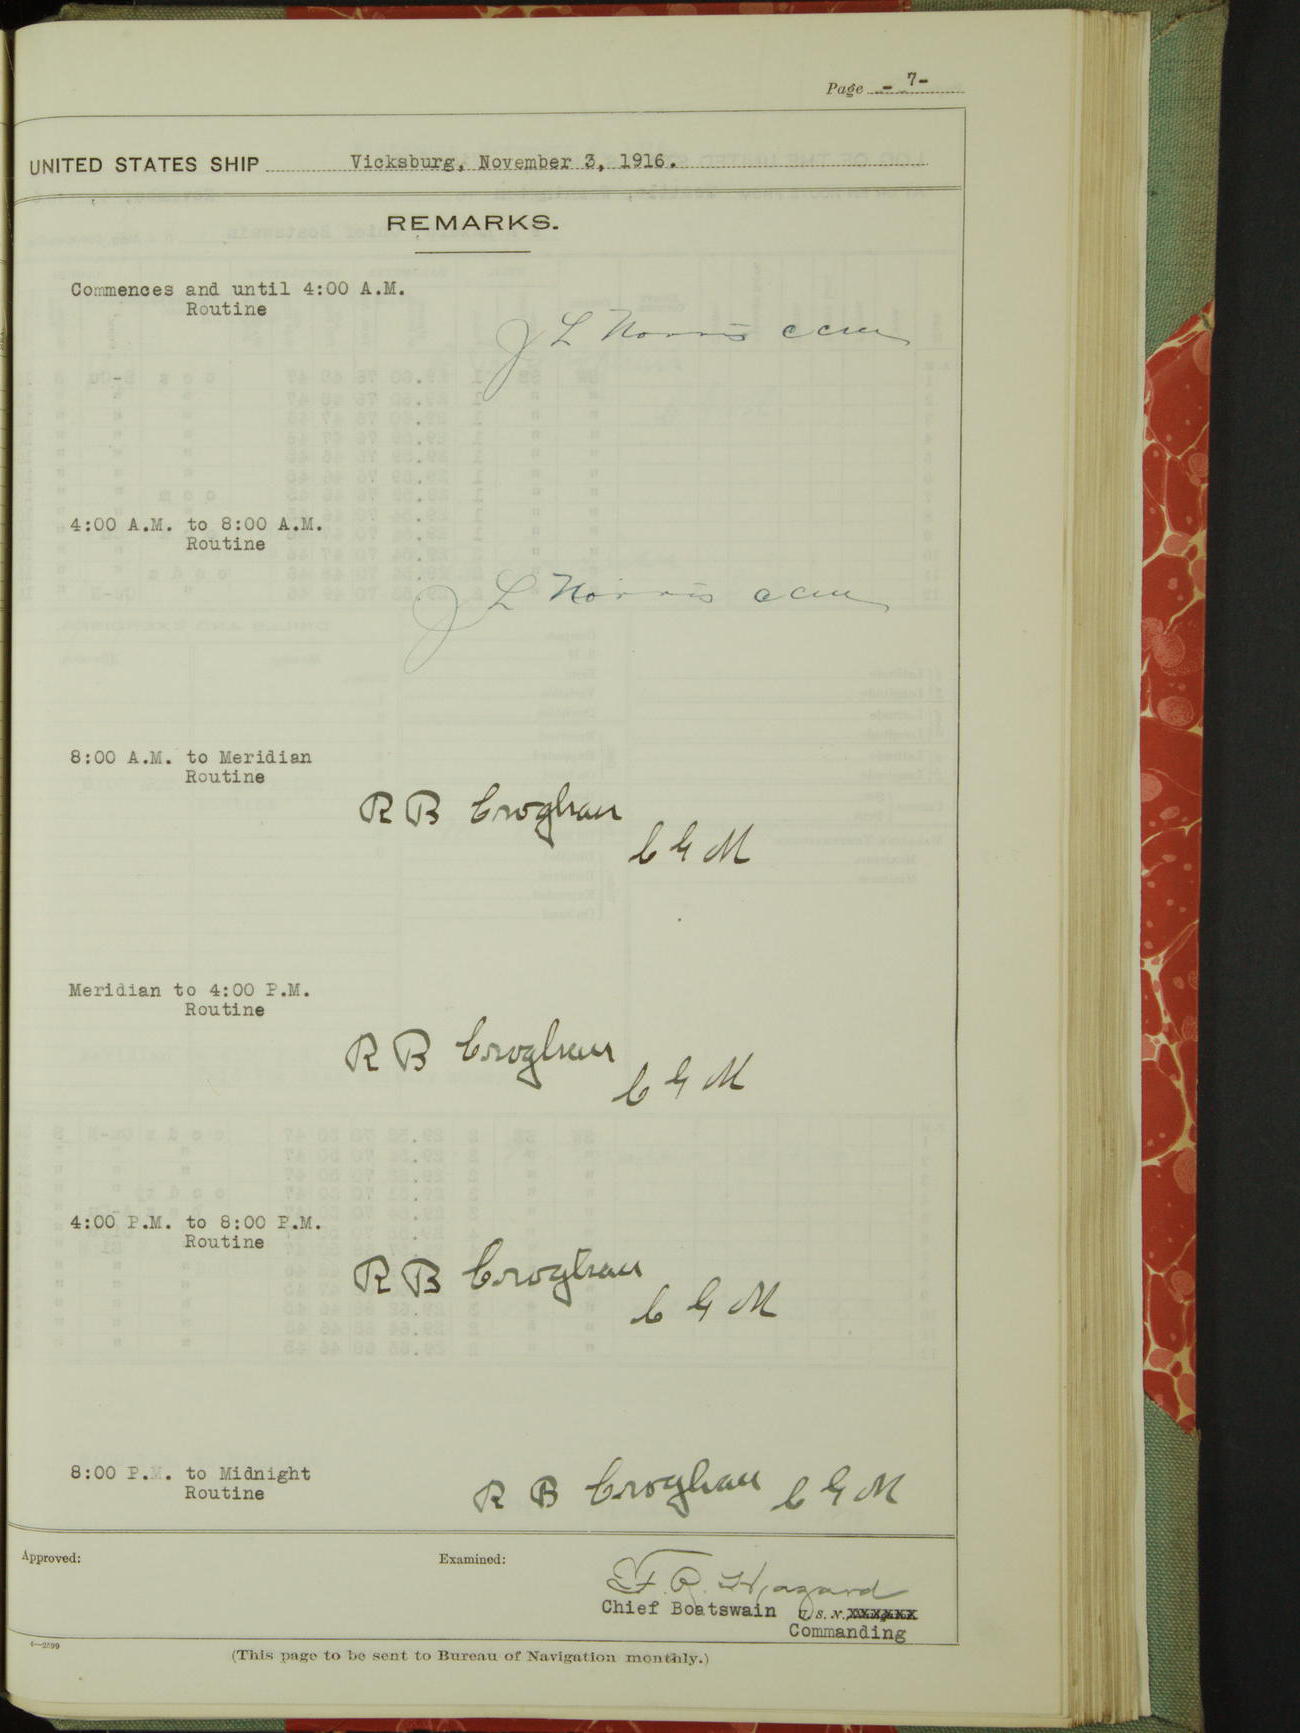 Page - 7-
UNITED STATES SHIP Vicksburg, November 3, 1916.
REMARKS.
Commences and until 4:00 A.M.
Routine
J L Norris CCM
4:00 A.M. to 8:00 A.M.
Routine
J L Norris CCM
8:00 A.M. to Meridian
Routine
R B Croghan
C G M
Meridian to 4:00 P.M.
Routine
R B Croghan
C G M
4:00 P.M. to 8:00 P.M.
Routine
R B Croghan
C G M
8:00 P.M. to Midnight
Routine
R B Croghan C G M
Approved:
Examined:
F. R. Hazard
Chief Boatswain U. S. N.
Commanding
(This page to be sent to Bureau of Navigation monthly.)